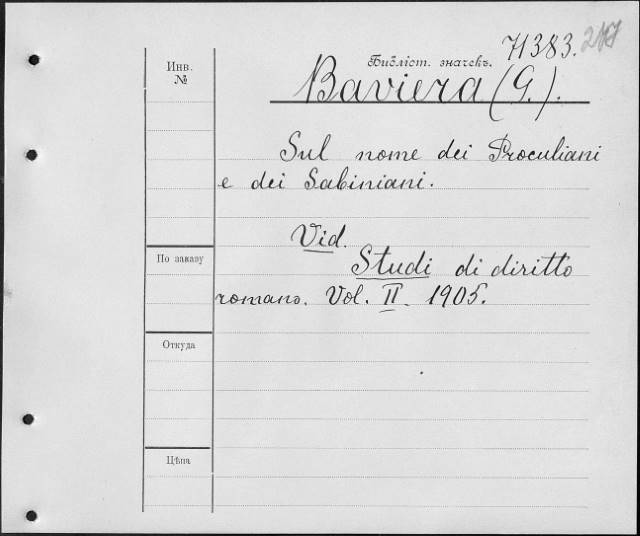 71383.
Инв.
№
Библіот. значекъ.
Baviera (G.).
Sul nome dei Proculiani
e dei Sabiniani.
Vid.
Studi di diritto
romano. Vol. II. 1905.
По заказу
Откуда
Цѣна